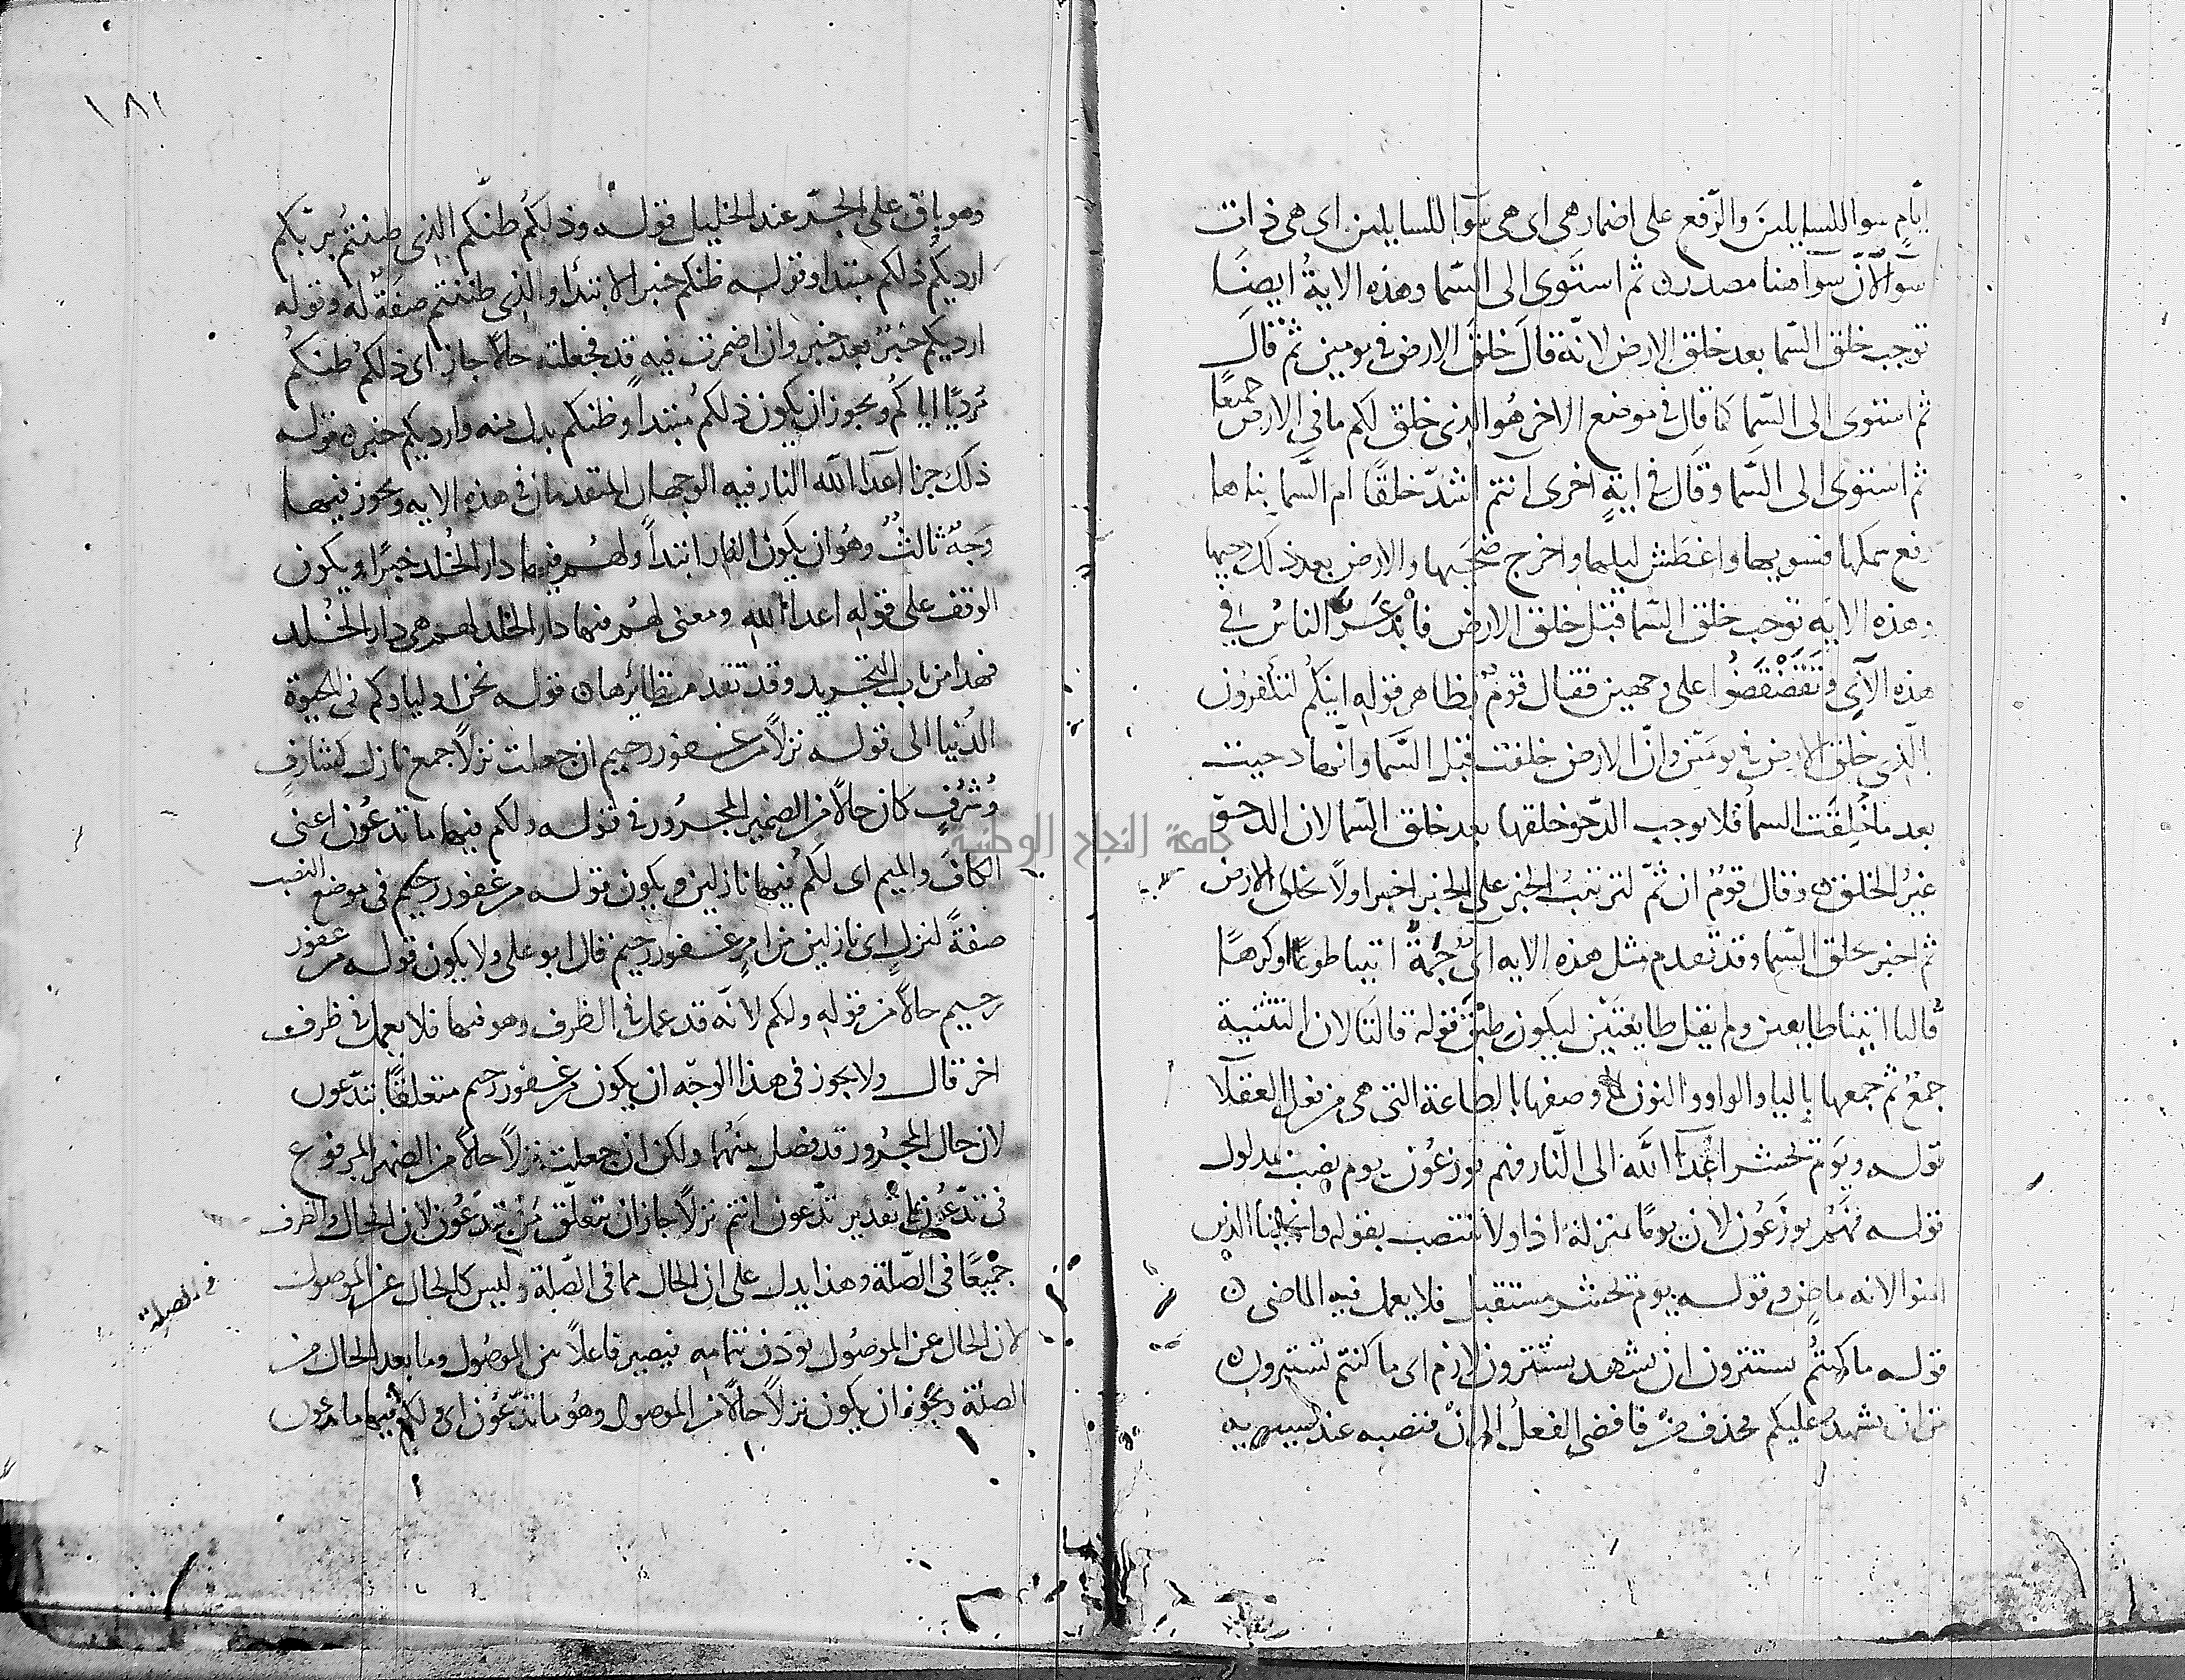 ايام سوا للسايلين والرفع على اضمار هي اى هي سوآ للسايلين اى هي ذات
سوآ لانّ سوآ هنا مصدر ثم استوى الى السما وهذه الاية ايضا
توجب خلق السما بعد خلق الارض لانه قال خلق الارض في يومين ثم قال
ثم استوى الى السما كما قال في موضع الاخر هو الذى خلق لكم ما في الارض جميعا
ثم استوى الى السما وقال في اية اخرى انتم اشد خلقا ام السما بناها
رفع سمكها فسويها واغطش ليلها واخرج ضحيها والارض بعد ذلك دحيها
وهذه الايه توجب خلق السما قبل خلق الارض الناس في
هذه الآى على وجهين فقال قوم بظاهر قوله اينكم لتكفرون
بالذى خلق الارض في يومين وان الارض خلقت قبل السما وانها دحيت
بعد ما خلقت السما فلا يوجب الدحو خلقها بعد خلق السما لان الدحو
غير الخلق وقال قوم ان ثم لترتيب الخبر على الخبر اخبر اولا بخلق الارض
ثم اخبر بخلق السما وقد تقدم مثل هذه الايه اتيا طوعا او كرها
قالتا اتينا طايعين ولم يقل طايعتين ليكون طبق قوله قالتا لان التثنية
جمع ثم جمعها باليا والواو والنون لما وصفها بالطاعة التى هى من فعل العقلا
قوله ويوم نحشر اعدآ الله الى النار فهم يوزعون يوم نصب بمدلول
قوله فهم يوزعون لان يوما بمنزلة اذا ولا ينتصب بقوله وانجينا الذين
امنوا لانه ماض وقوله يوم نحشر مستقبل فلا يعمل فيه الماضى
قوله ما كنتم تستترون ان يشهد يستترون لازم اى ما كنتم تستترون
من ان يشهد عليكم فحذف من فافضى الفعل الى ان فنصبه عند سيبويه
١٨١
وهو باق على الجر عند الخليل قوله وذلكم ظنكم الذى ظننتم بربكم
ارديكم ذلكم مبتدا وقوله ظنكم خبر الابتدا والذى ظننتم صفة له وقوله
ارديكم خبر بعد خبر وان اضمرت فيه قد فجعلته حالا جاز اى ذلكم ظنكم
مرديا اياكم ويجوز ان يكون ذلكم مبتدا وظنكم بدل منه وارديكم خبره قوله
ذلك جزا اعدا الله النار فيه الوجهان المتقدمان في هذه الايه ويجوز فيها
وجه ثالث وهو ان يكون النار ابتدا ولهم فيها دار الخلد خبرا ويكون
الوقف على قوله اعدا الله ومعنى لهم فيها دار الخلد لهم هى دار الخلد
فهذا من باب التجريد وقد تقدم نظائرها قوله نحن اولياوكم في الحيوة
الدنيا الى قوله نزلا من غفور رحيم ان جعلت نزلا جمع نازل كشارف
وشرف كان حالا من الضمير المجرور في قوله ولكم فيها ما تدعون اعنى
الكاف والميم اى لكم فيها نازلين ويكون قوله من غفور رحيم في موضع النصب
صفة لنزل اى نازلين من امر غفور رحيم قال ابو على ولا يكون قوله من غفور
رحيم حالا من قوله ولكم لانه قد عمل في الظرف وهو فيها فلا يعمل في ظرف
اخر قال ولا يجوز في هذا الوجه ان يكون من غفور رحيم متعلقا بتدعون
لان حال المجرور قد فصل بينهما ولكن ان جعلت نزلا حالا من الضمير المرفوع
في تدعون على تقدير تدعون انتم نزلا جاز ان يتعلق من بتدعون لان الحال والظرف
جميعا في الصلة وهذا يدل على ان الحال مما في الصلة وليس كالحال عن الموصول
في الصلة
لان الحال عن الموصول يوذن بتمامه فيصير فاعلا بين الموصول وما بعد الحال من
الصلة ويجوز ان يكون نزلا حالا من الموصول وهو ما تدعون اى ولكم فيها ما تدعون
جامعة النجاح الوطنية